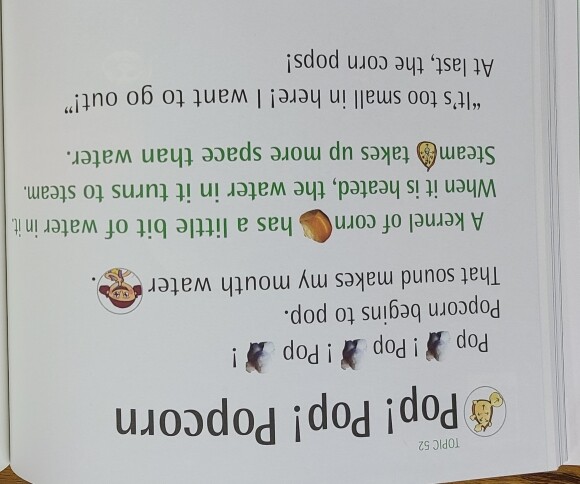 TOPIC 52
Pop! Pop! Popcorn
Pop ! Pop ! Pop !
Popcorn begins to pop.
That sound makes my mouth water .
A kernel of corn has a little bit of water in it.
When it is heated, the water in it turns to steam.
Steam takes up more space than water.
“It's too small in here! I want to go out!”
At last, the corn pops!